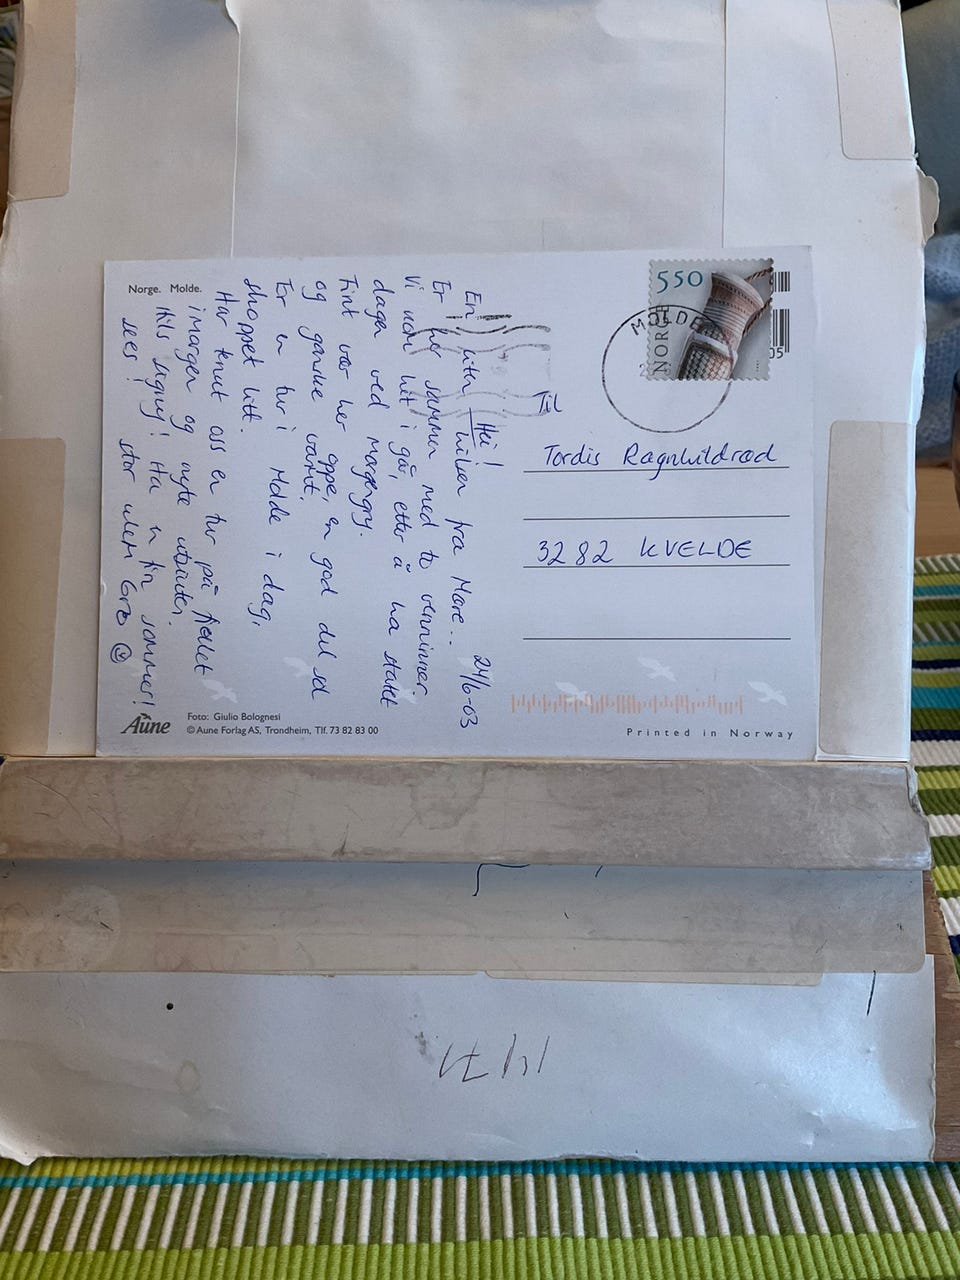 Norge. Molde.
24/6-03
Hei!
En liten hilsen fra Møre..
Er her sammen med to venninner
Vi kom hit i går, etter å ha startet
dagen ved morgengry.
Fint vær her oppe, en god del sol
og ganske varmt.
Er en tur i Molde i dag,
shoppet litt.
Har tenkt oss en tur på fjellet
imorgen og nyte utsikten.
Hils Signy! Ha en fin sommer!
sees! stor klem Gro
550
NORGE
MOLDE
05
Til
Tordis Ragnhildrød
3282 KVELDE
Aune
Foto: Giulio Bolognesi
© Aune Forlag AS, Trondheim, Tlf. 73 82 83 00
Printed in Norway